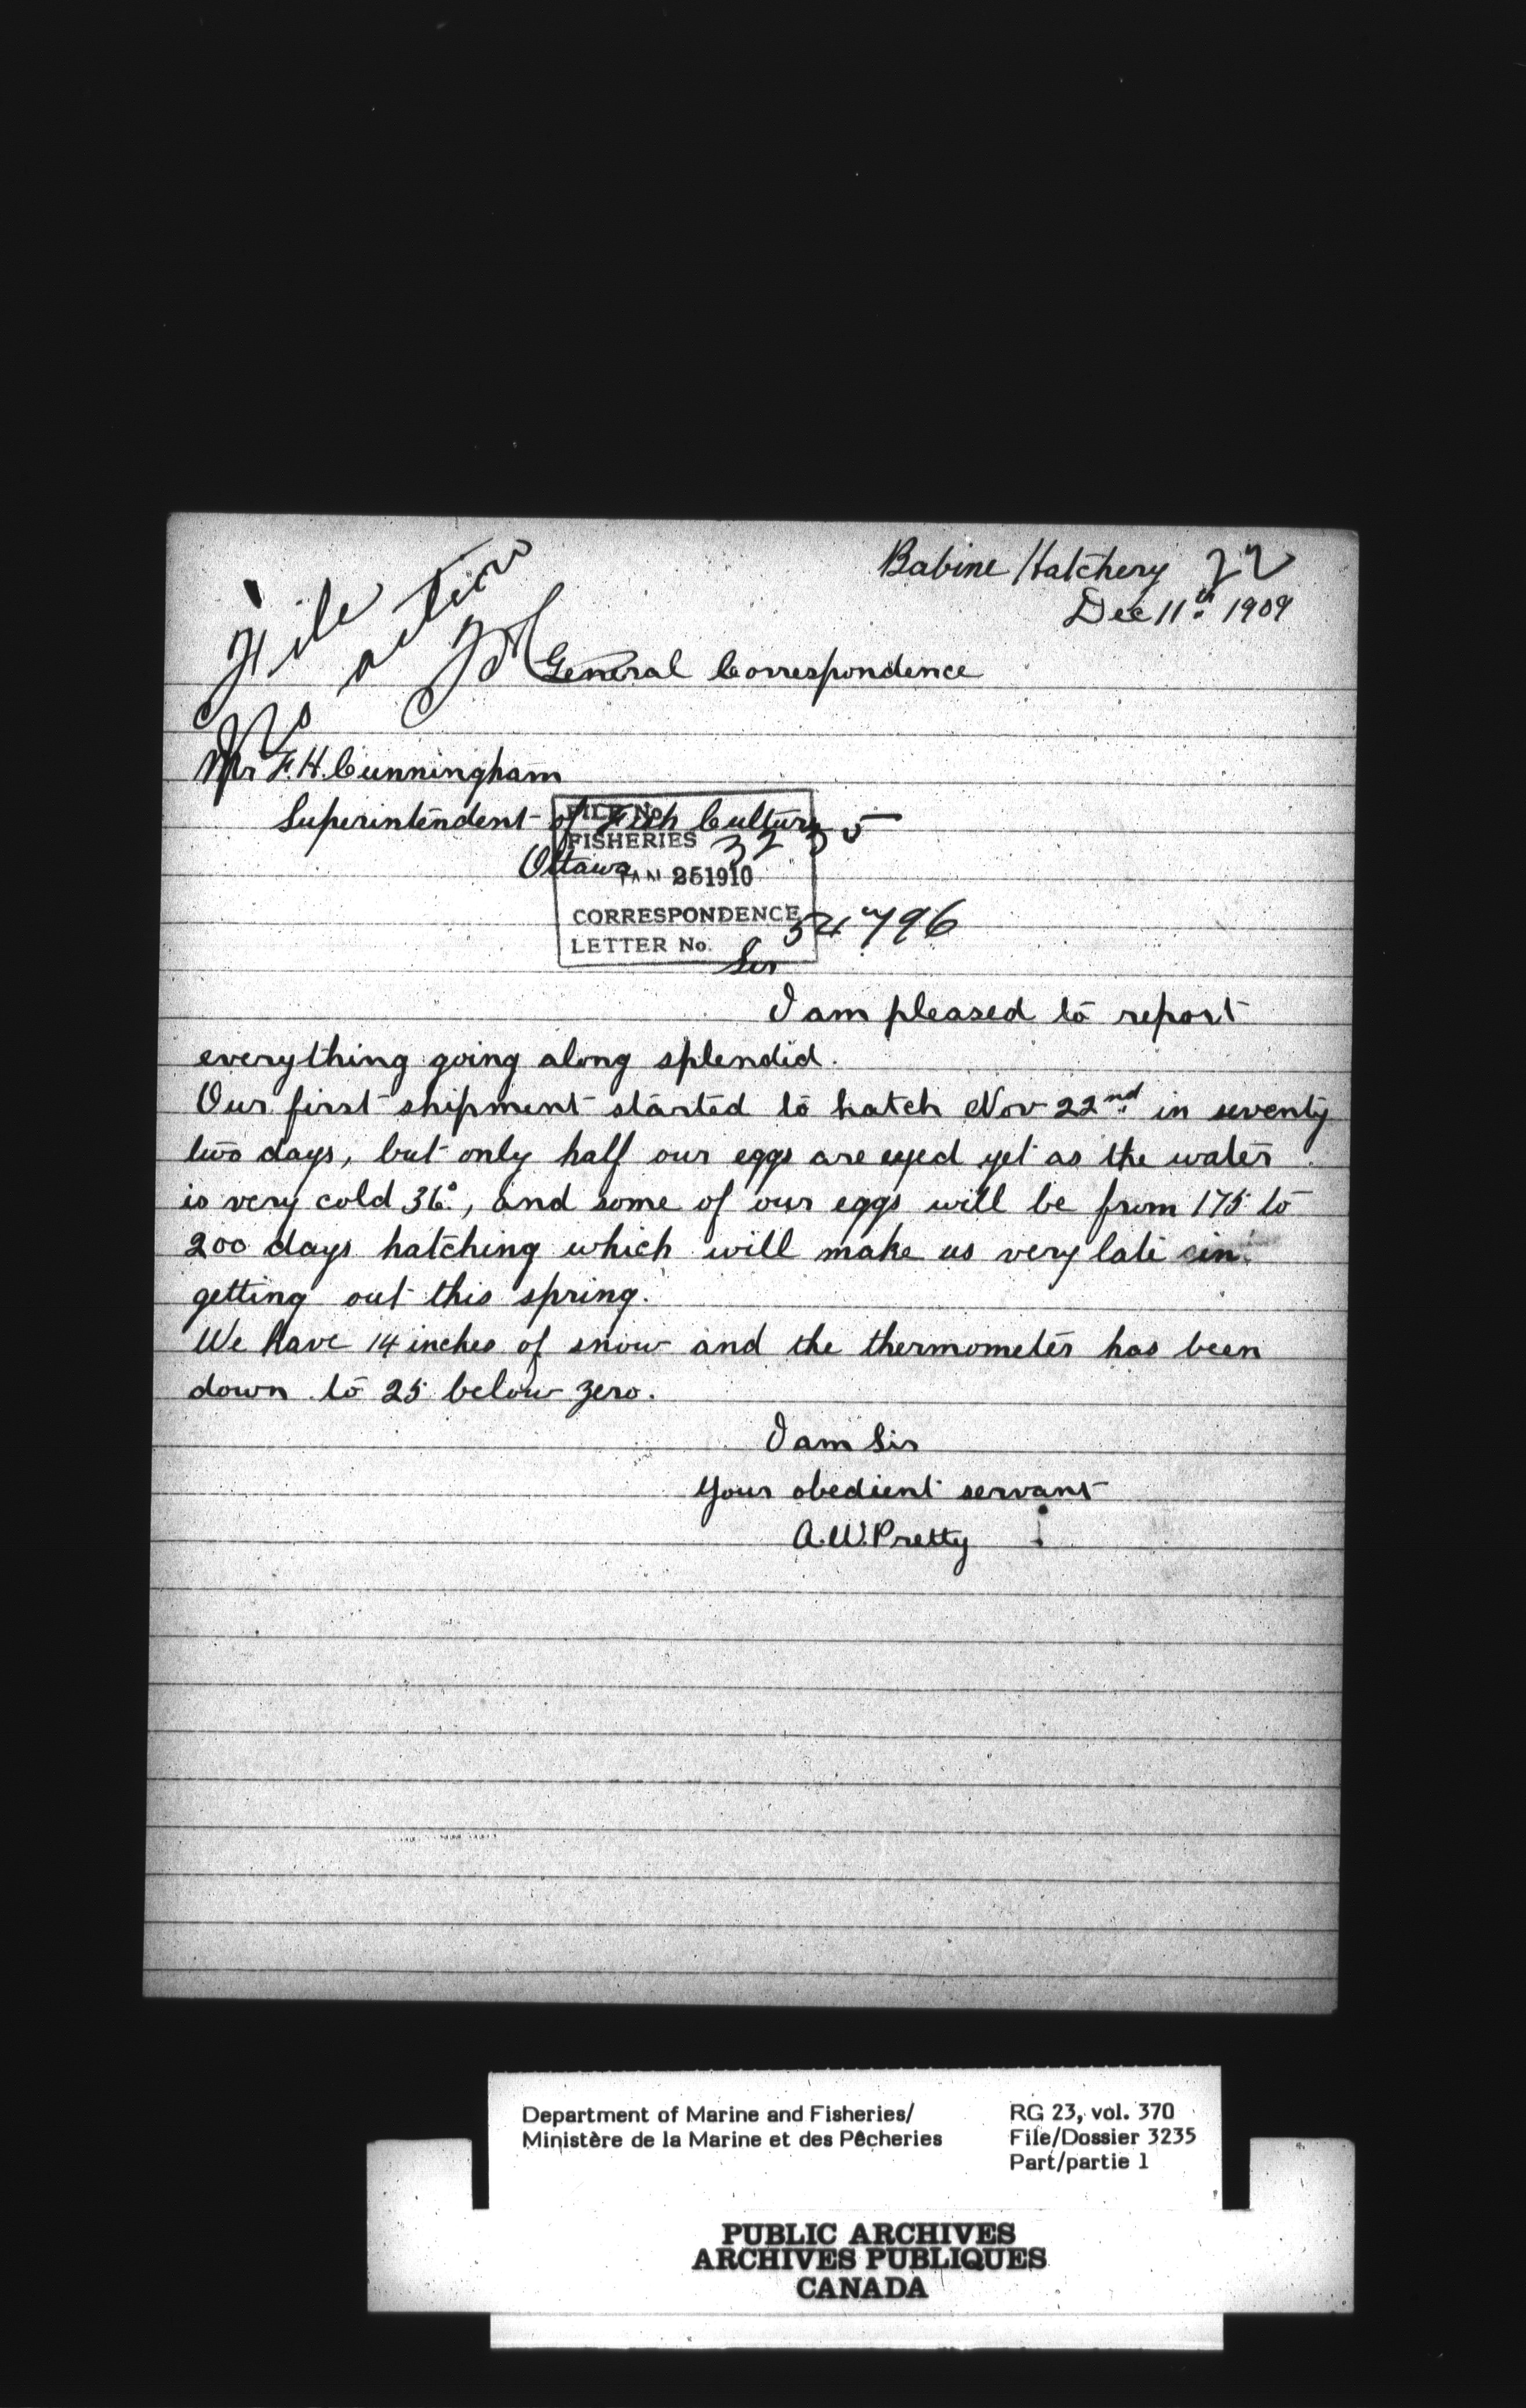 Babine Hatchery 22
Dec 11th 1909
File
No action
General Correspondence
Mr F. H. Cunningham
Superintendent of Fish Culture
Ottawa
FILE No. 3235
FISHERIES
JAN 25 1910
CORRESPONDENCE
LETTER No. 54796
Sir
I am pleased to report
everything going along splendid.
Our first shipment started to hatch Nov 22nd in seventy
two days, but only half our eggs are eyed yet as the water
is very cold 36°, and some of our eggs will be from 175 to
200 days hatching which will make us very late in
getting out this spring.
We have 14 inches of snow and the thermometer has been
down to 25 below zero.
I am Sir
Your obedient servant
A. W. Pretty
Department of Marine and Fisheries/
Ministère de la Marine et des Pêcheries
RG 23, vol. 370
File/Dossier 3235
Part/partie 1
PUBLIC ARCHIVES
ARCHIVES PUBLIQUES
CANADA